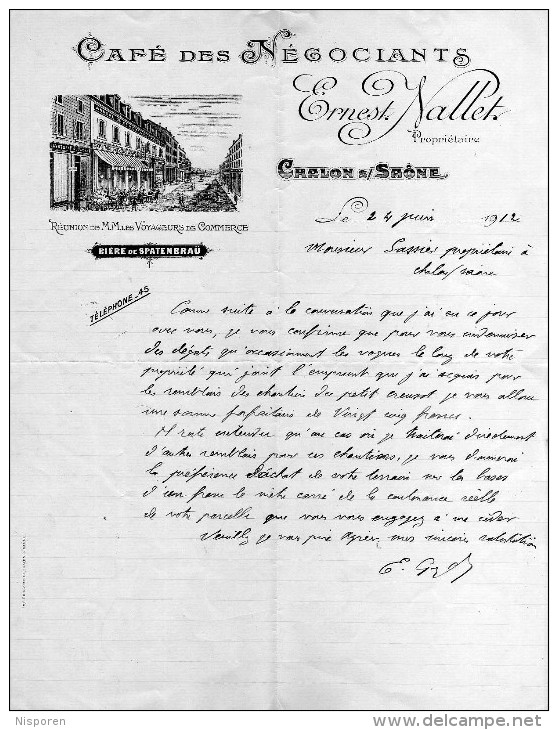 CAFÉ DES NÉGOCIANTS
Ernest Nallet.
Propriétaire
CHALON S/ SAÔNE
RÉUNION DE M.M. LES VOYAGEURS DE COMMERCE
BIÈRE DE SPATENBRAÜ
TÉLÉPHONE_45
Le 24 juin 1912
Monsieur Lassier propriétaire à
Chalon/saone
Comme suite à la conversation que j'ai eu ce jour
avec vous, je vous confirme que pour vous indemniser
des dégats qu'occasionnent les wagons le long de votre
propriété qui joint l'emprunt que j'ai acquis pour
les remblais des chantiers du petit creusot je vous alloue
une somme forfaitaire de Vingt cinq francs.
Il reste entendu qu'au cas où je traiterai directement
d'autres remblais pour ces chantiers, je vous donnerai
la préférence d'achat de votre terrain sur les bases
d'un franc le mètre carré de la contenance réelle
de votre parcelle que vous vous engagez à me céder
Veuillez je vous prie agréer mes sincères salutations
E.
Nisporen
delcampe.net